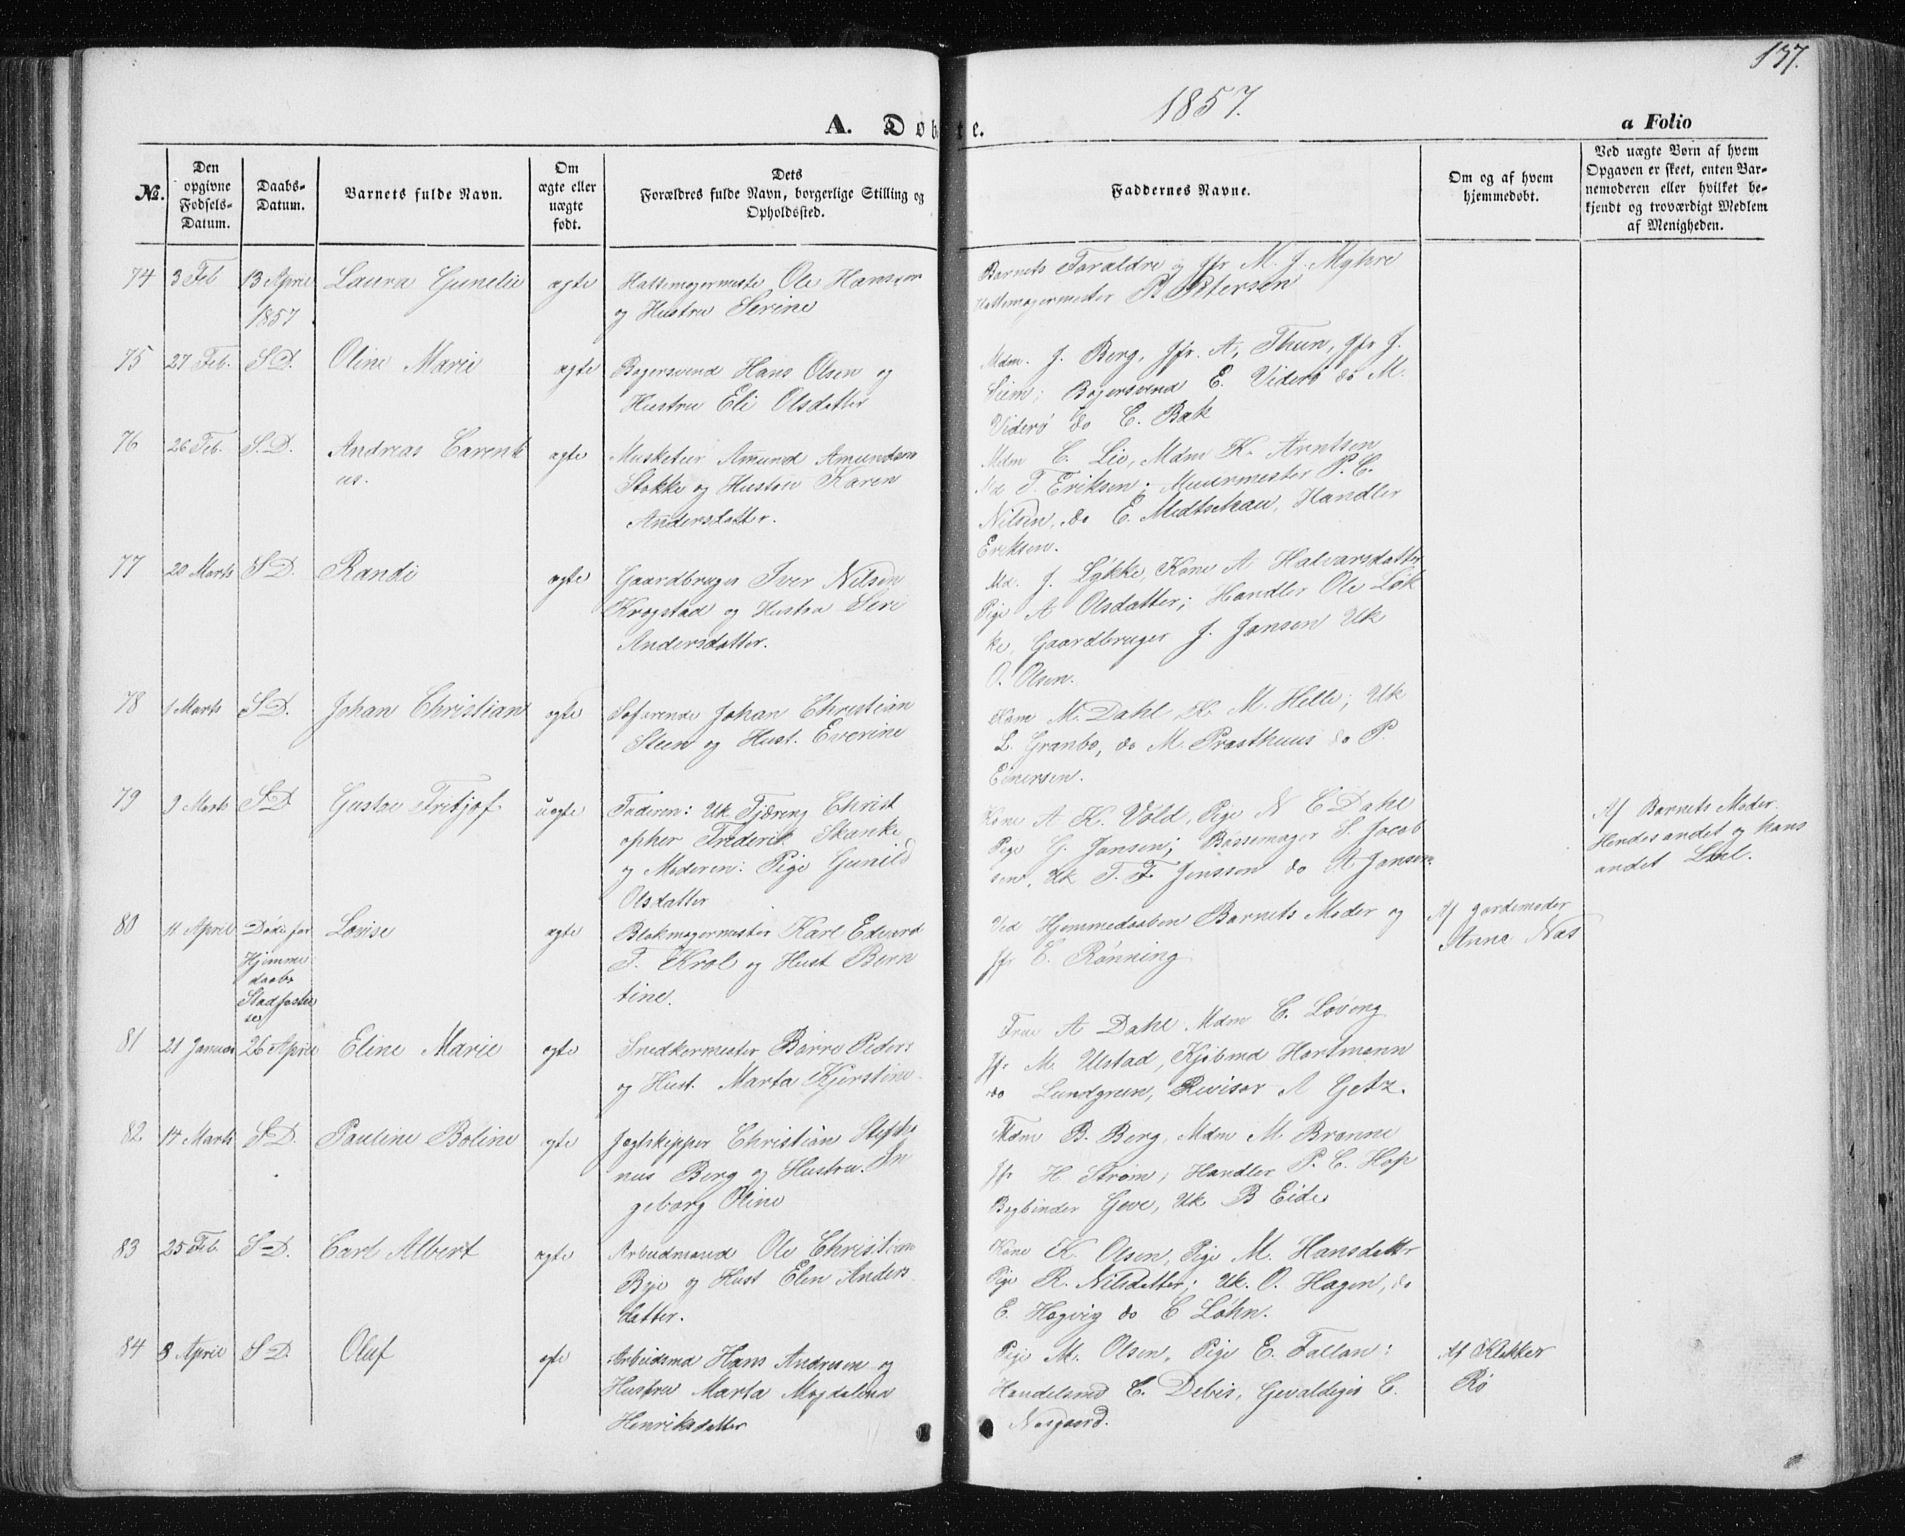 137.
1857.
A. Dobte.
a Folio
№.
Den opgivne Fodsels-Datum.
Daabs-Datum.
Barnets fulde Navn.
Om ægte eller uægte født.
Dets Forældres fulde Navn, borgerlige Stilling og Opholdssted.
Faddernes Navne.
Om og af hvem hjemmedobt.
Ved uægte Børn af hvem Opgaven er skeet, enten Barnemoderen eller hvilket bekjendt og troværdigt Medlem af Menigheden.
74 3 Feb 13 April 1857 Laura Gunelie ægte
Hattemagermester Ole Hansen
og Hustru Serine
Barnets Foraldre og Jfr M. J. Myhre
Hattemagermester P. Petersen
75 27 Feb. S.D. Oline Marie ægte
Bagersvend Hans Olsen og
Hustru Eli Olsdatter
Mdm. J. Berg, Jfr. A. Thun, Jfr J.
Siem; Bagersvend E. Viderø do M.
Viderø do C. Bak
76 26 Feb. S.D. Andreas Carenti
us. ægte
Musketeer Amund Amundsen
Stokke og Hustru Karen
Andersdatter.
Mdm C. Lie, Mdm K. Arntsen
Md T. Eriksen; Muurmester P. C.
Nilsen, do E. Medtschau, Handler
Eriksen.
77 20 Marts S.D. Randi ægte
Gaardbruger Iver Nilsen
Krogstad og Hustru Seri
Andersdatter.
Md. J. Løkke, Kone A Halvarsdatter
Pige A Olsdatter; Handler Ole Løk
ke, Gaardbruger J. Jansen Uk
O. Olsen.
78 1 Marts S.D. Johan Christian ægte
Søfarende Johan Christian
Steen og Hust. Everine
Kone M. Dahl, K. M. Helle; Uk
L. Granbo, do M. Prasthuus do P.
Einersen.
79 9 Marts S.D. Gustav Fritjof uægte
Faderen: Uk Tjæreng Christ
opher Frederik Skanke
og Moderen: Pige Gunild
Olsdatter
Kone A K. Vold, Pige N C Dahl
Pige G. Jansen; Bøssemager S. Jacob
sen, Uk T. F. Jenssen do A Jansen
Af Barnets Moder
Hendes andet og hans
andet Leil.
80 11 April Døde før
Hjemme
daabs
Stadfæstel
se Lovise ægte
Blokmagermester Karl Edvard
T. Krol og Hust Bern
tine.
Ved Hjemmedaaben Barnets Moder og
Jfr C. Rønning
Af Jordemoder
Anne Næs
81 21 Januar 26 April Eline Marie ægte
Snedkermester Børre Peders
og Hust. Marta Kjerstine
Frue A Dahl Mdm C. Løseng
Jfr M. Ulstad, Kjøbmd Hartmann
do Lundgreen, Revisor A Getz.
82 14 Marts S.D. Pauline Boline ægte
Jagtskipper Christian Steffe
nus Berg og Hustru In
geborg Oline
Mdm B. Berg, Mdm M Branne
Jfr H Strøm; Handler P. C. Hop
Bogbinder Geve, Uk B Eide
83 25 Feb. S.D. Carl Albert ægte
Arbeidsmand Ole Christian
Bye og Hust Elen Anders
datter.
Kone K. Olsen, Pige M. Hansdatter
Pige R. Nilsdatter; Uk. O. Hagen, do
E. Hogvig do C Løhn.
84 8 April S.D. Oluf ægte
Arbeidsmd Hans Andresen og
Hustru Marta Magdalena
Henriksdatter
Pige M. Olsen, Pige E. Fallan;
Handelsmd C. Debis, Gevaldiger C.
Næsgaard.
Af Klokker
Rø